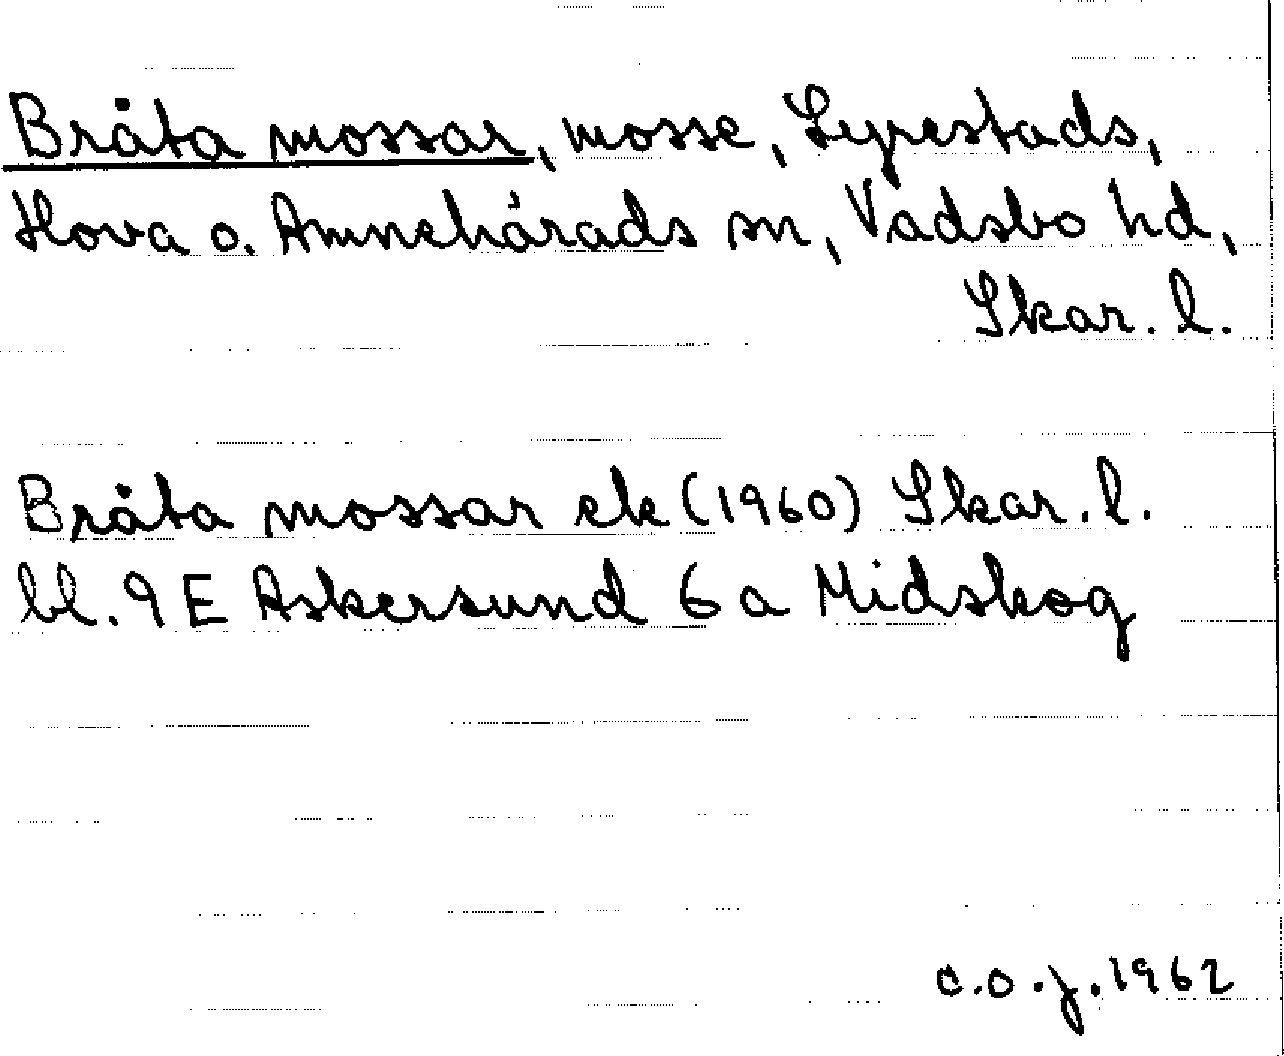 Bråta mossar, mosse, Lyrestads,
Hova o. Amnehärads sn, Vadsbo hd,
Skar. l.
Bråta mossar ek (1960) Skar. l.
bl. 9 E Askersund 6 a Midskog
C.O.J. 1962